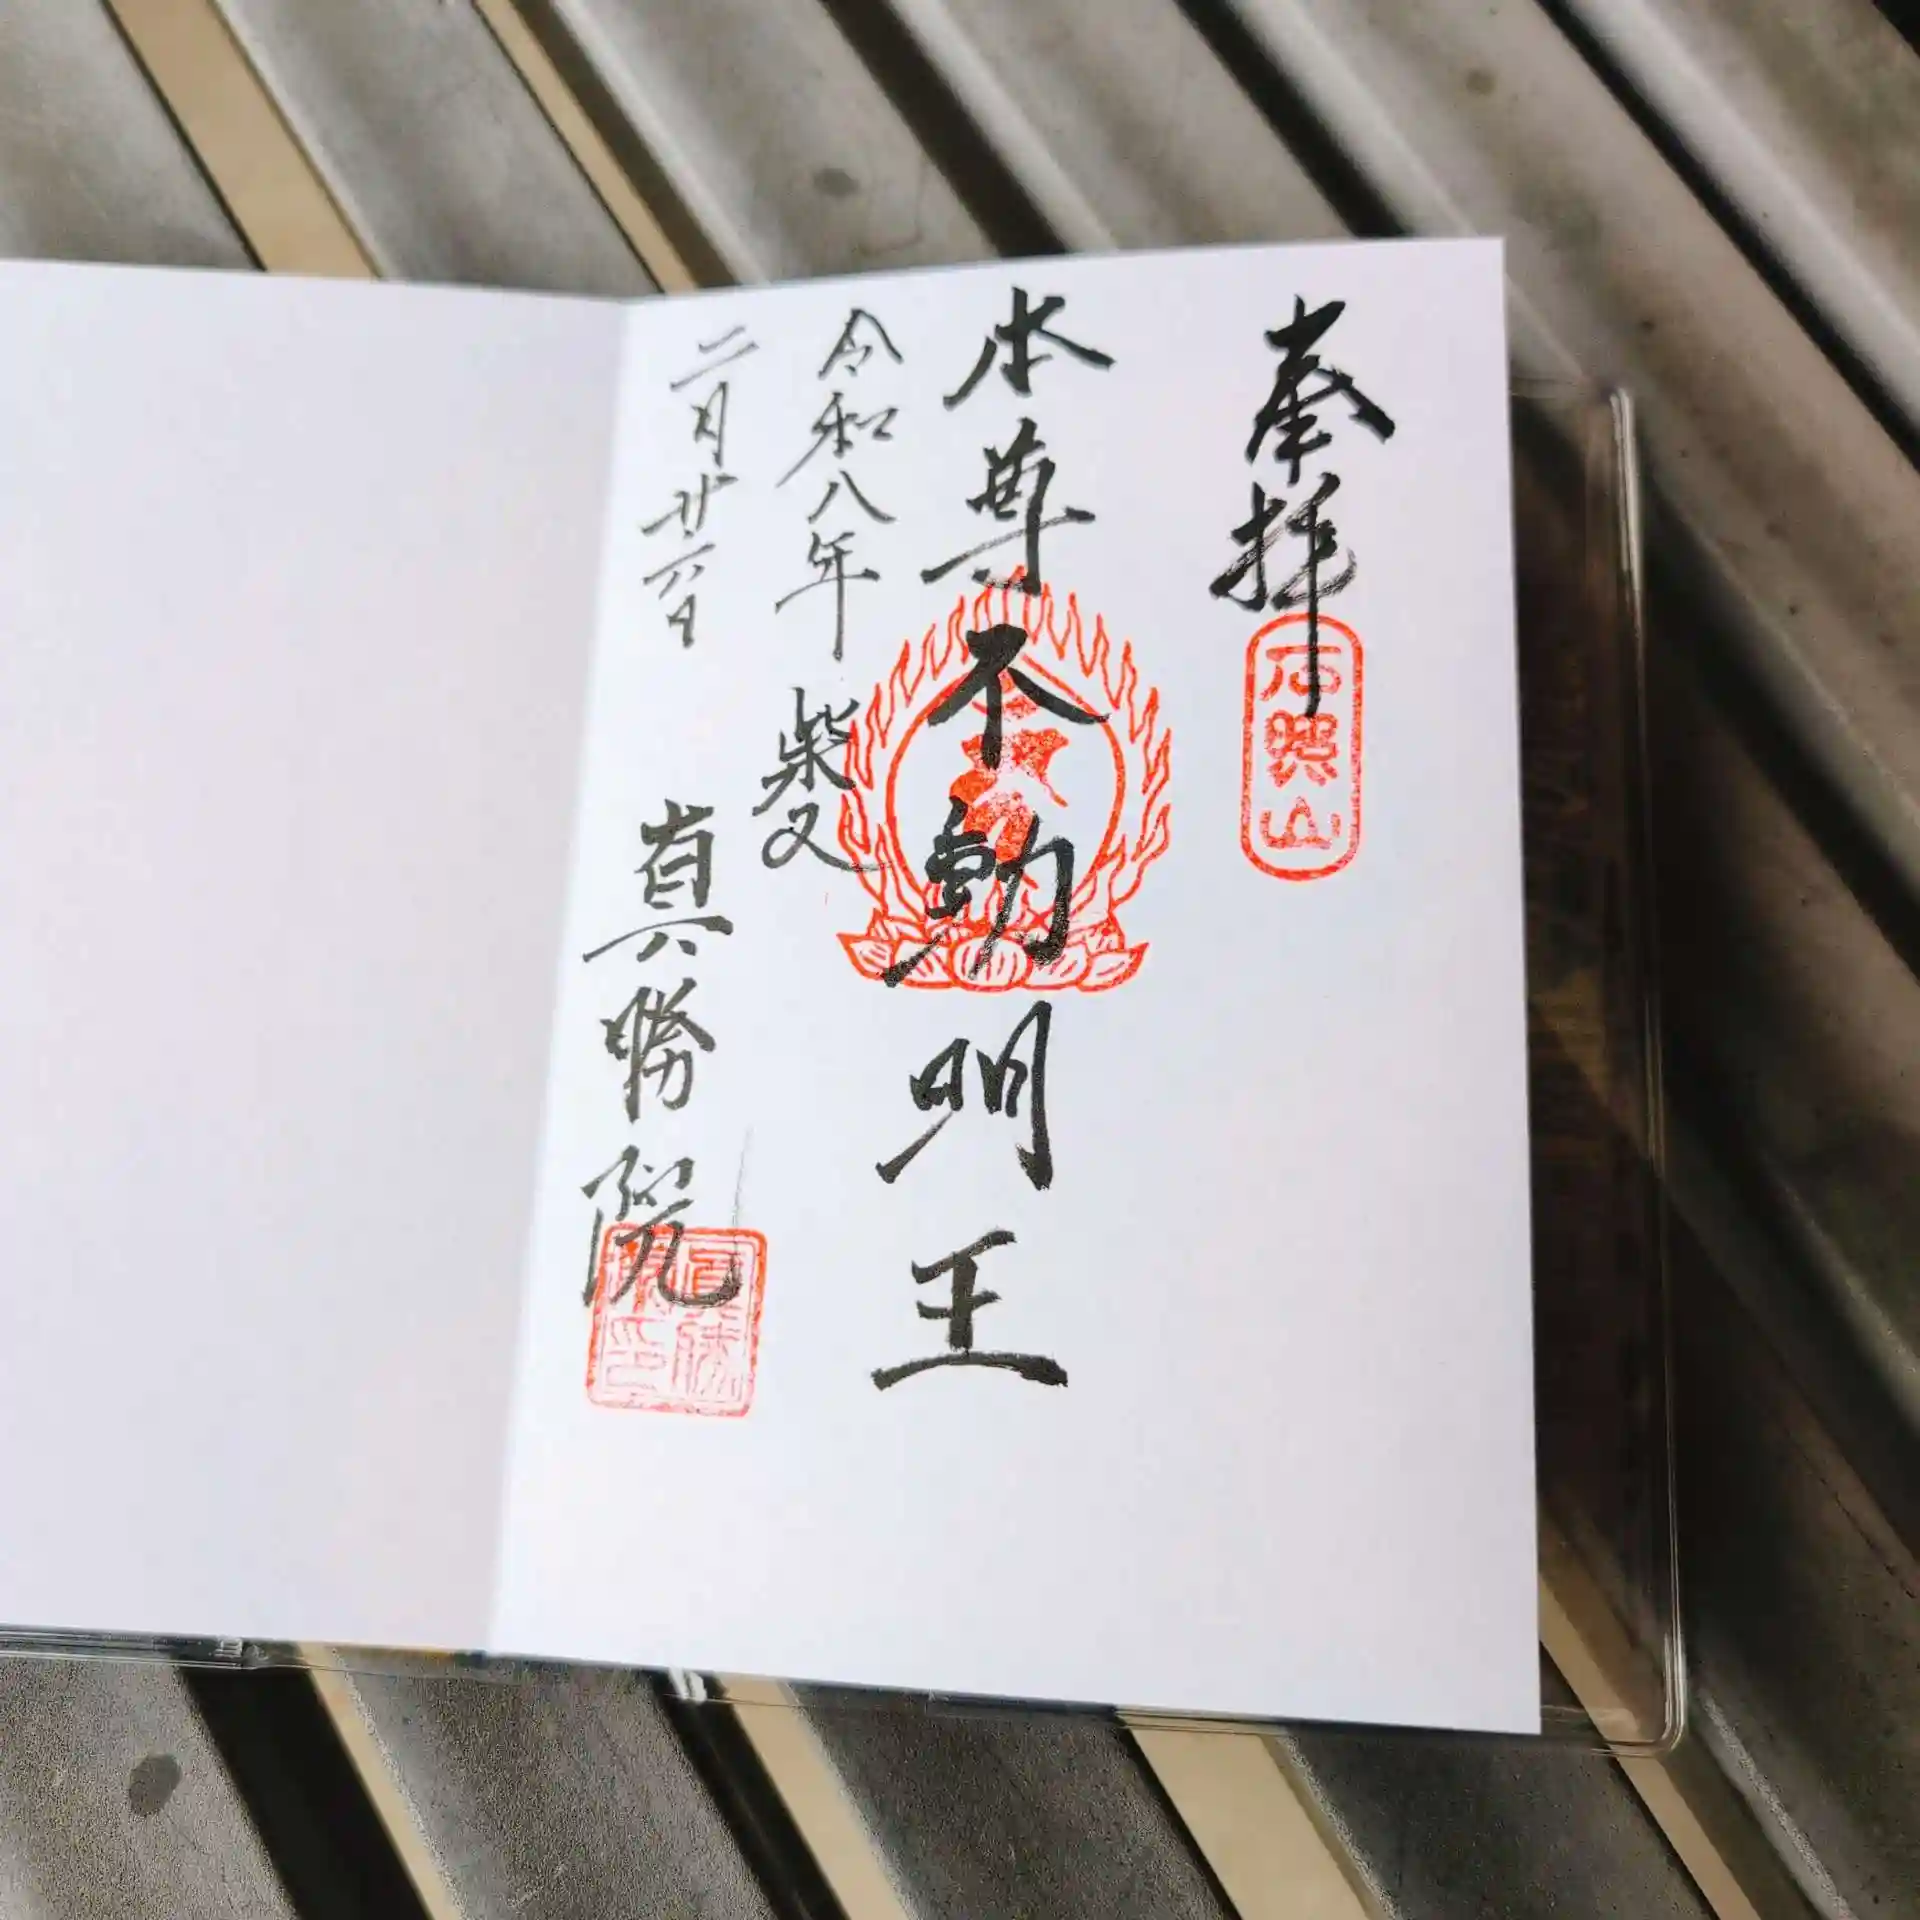 奉拝
石照山
本尊不動明王
令和八年
柴又
二月廿六日
真勝院